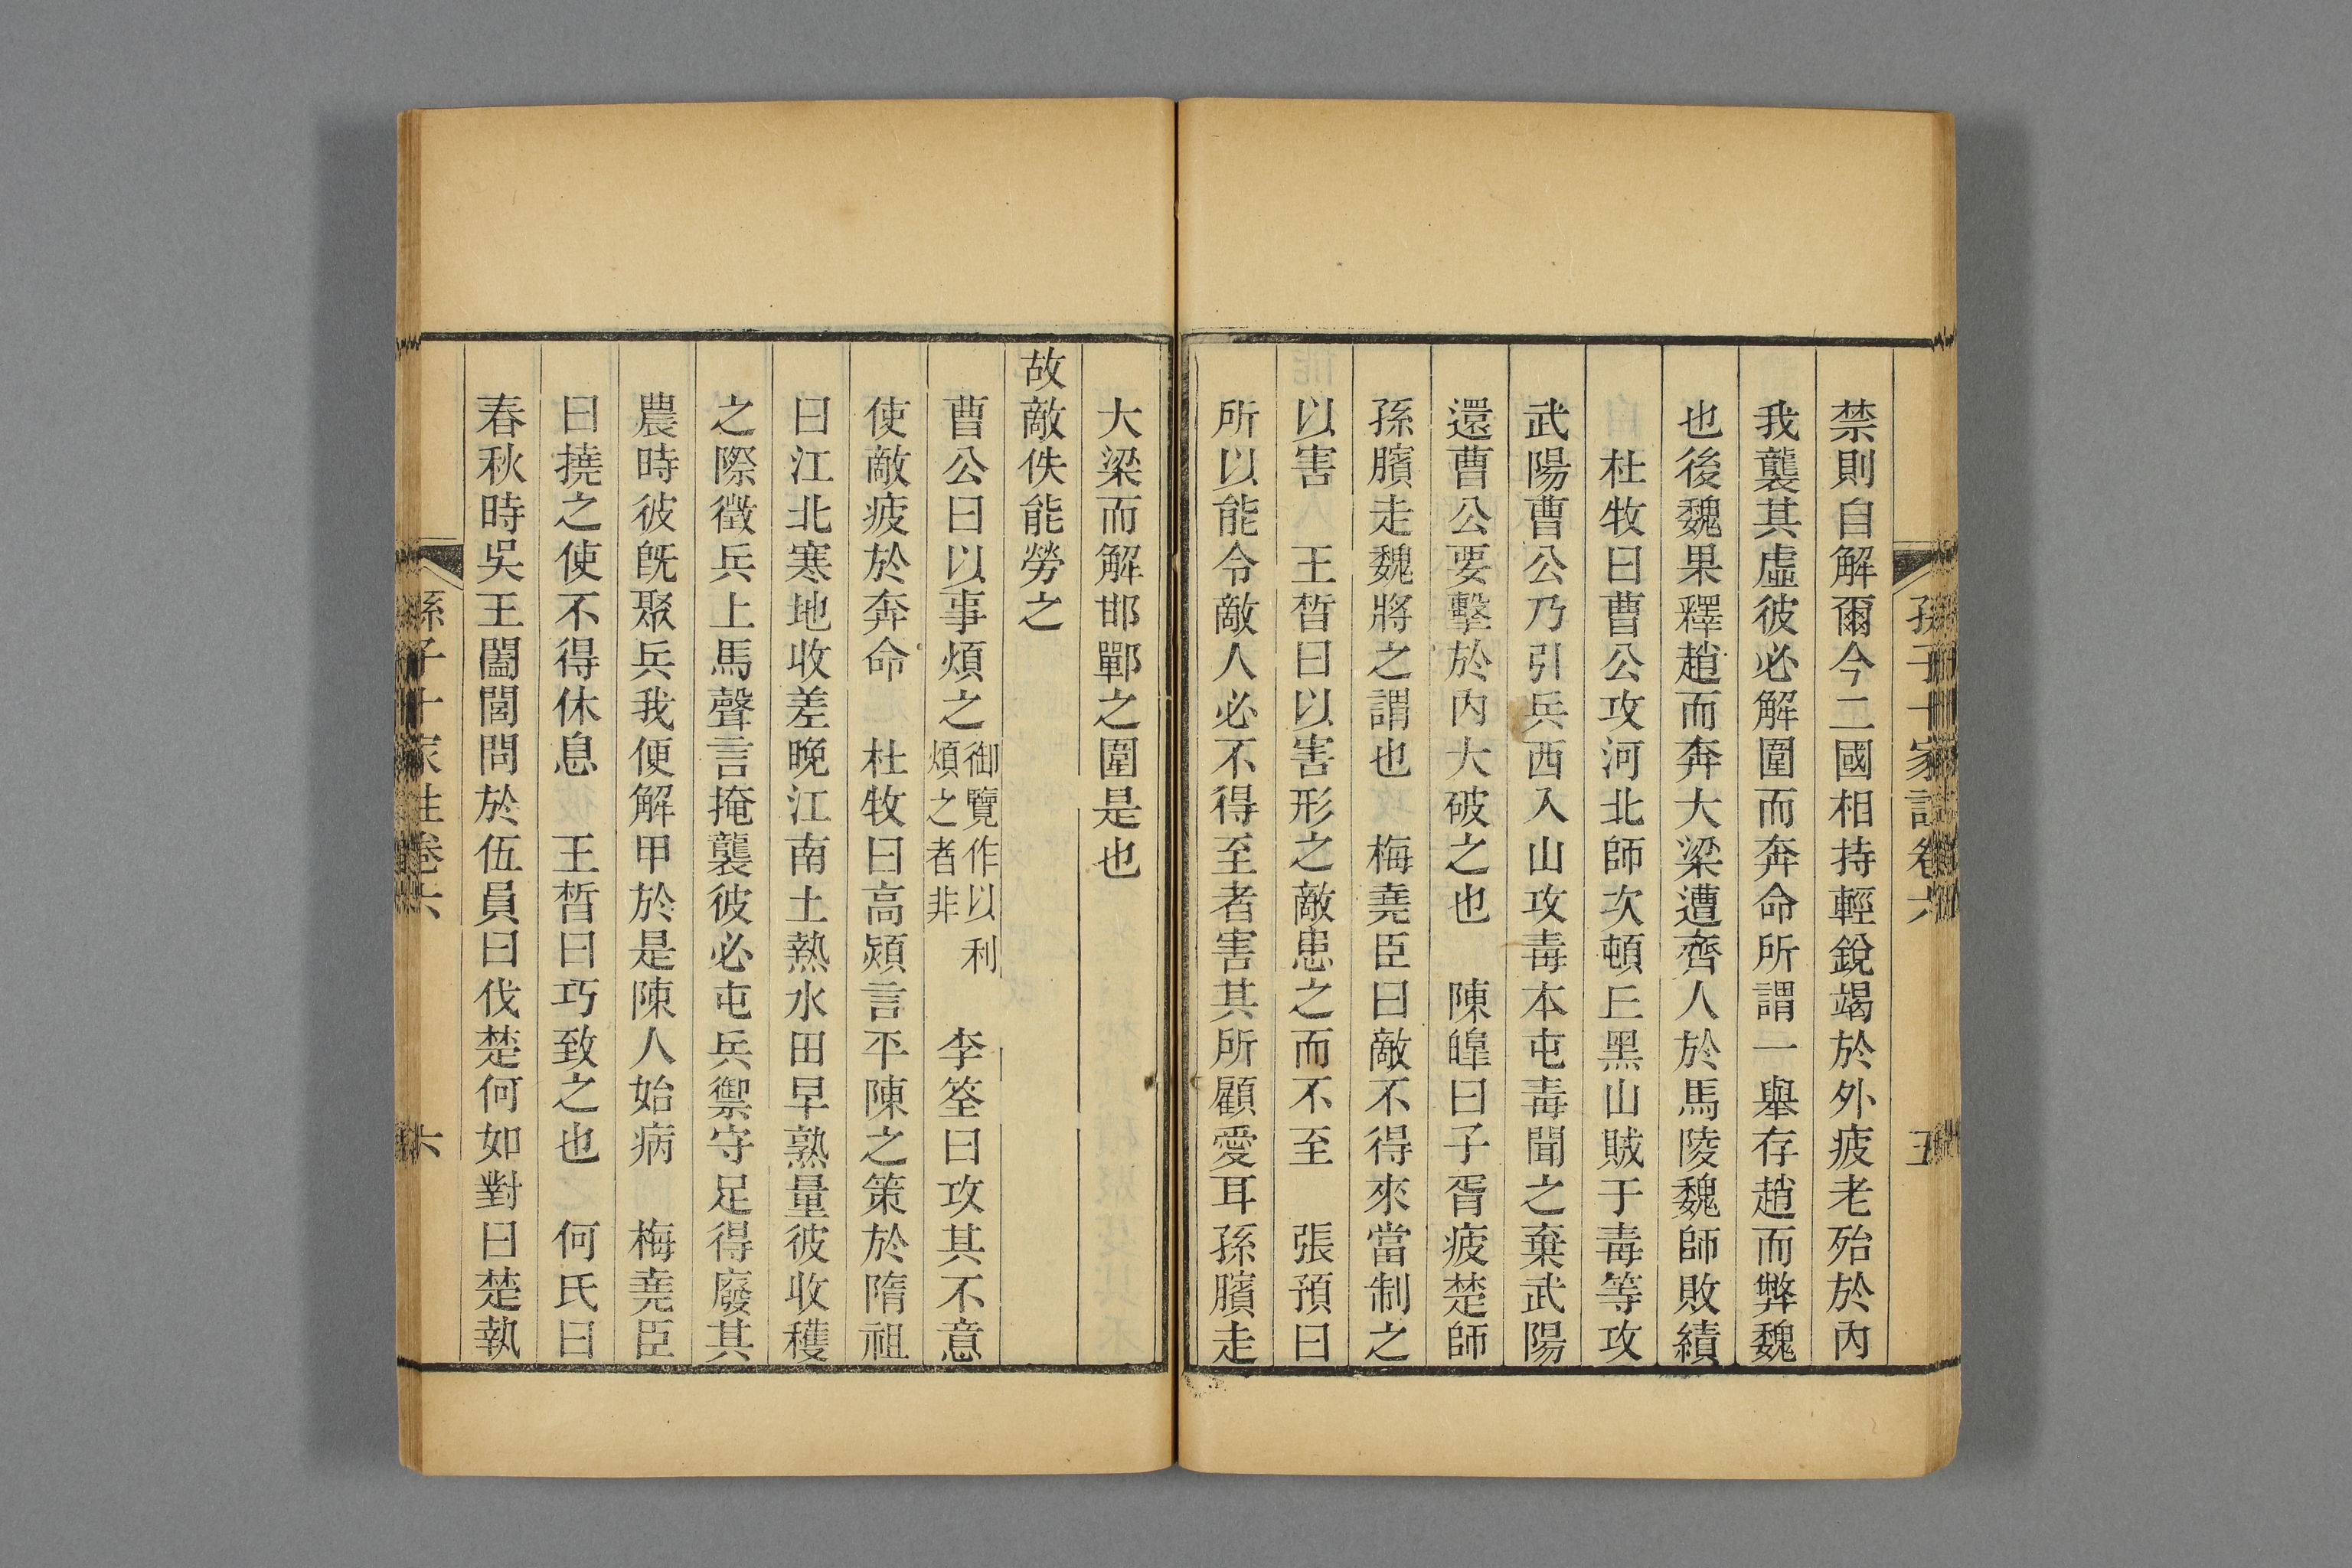 孫子十家註卷六 五
禁則自解爾今二國相持輕銳竭於外疲老殆於內
我襲其虛彼必解圍而奔命所謂一舉存趙而弊魏
也後魏果釋趙而奔大梁遭齊人於馬陵魏師敗績
杜牧曰曹公攻河北師次頓𠀉黑山賊于毒等攻
武陽曹公乃引兵西入山攻毒本屯毒聞之棄武陽
還曹公要擊於內大破之也 陳皞曰子胥疲楚師
孫臏走魏將之謂也 梅堯臣曰敵不得來當制之
以害 王晳曰以害形之敵患之而不至 張預曰
所以能令敵人必不得至者害其所顧愛耳孫臏走
大梁而解邯鄲之圍是也
故敵佚能勞之
曹公曰以事煩之御覽作以利煩之者非 李筌曰攻其不意
使敵疲於奔命 杜牧曰高熲言平陳之策於隋祖
曰江北寒地收差晚江南土熱水田早熟量彼收穫
之際徵兵上馬聲言掩襲彼必屯兵禦守足得廢其
農時彼旣聚兵我便解甲於是陳人始病 梅堯臣
曰撓之使不得休息 王晳曰巧致之也 何氏曰
春秋時吳王闔閭問於伍員曰伐楚何如對曰楚執
孫子十家註卷六 六